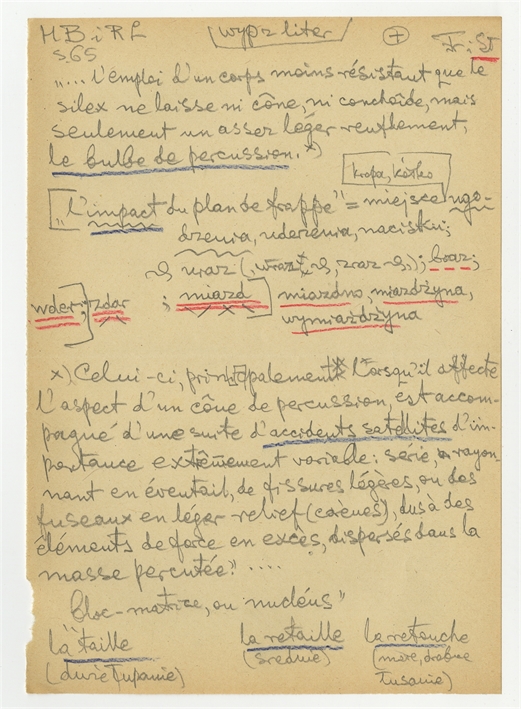 MBiRL [wypz liter] + Fr. i ST
s. 65
„... l'emploi d'un corps moins résistant que le
silex ne laisse ni cône, ni conchoïde, mais
seulement un assez léger renflement,
le bulbe de percussion. x)
kropa, kółko
„l'impact du plan de frappe" = miejsce ugo-
dzenia, uderzenia, nacisku;
uraz ( ); baaz;
wder; zdar ; miazd miazdno, miażdżyna,
wymiażdżyna
x) Celui-ci, principalement lorsqu'il affecte
l'aspect d'un cône de percussion, est accom-
pagné d'une suite d'accidents satellites d'im-
portance extrêmement variable: série, rayon-
nant en éventail, de fissures légères, ou des
fuseaux en léger relief (carènes), dus à des
éléments de force en excès, dispersés dans la
masse percutée." ....
bloc-matrice, ou nucléus"
la taille la retaille la retouche
(duże łupanie) (średnie) (małe, drobne
łusanie)